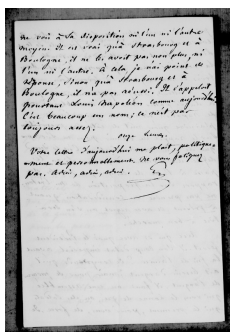 ne vois à sa disposition ni l'un ni l'autre
moyen. Il est vrai qu'à Strasbourg et à
Boulogne, il ne les avoit pas non plus, ni
l'un ni l'autre. À cela je n'ai point de
réponse, sinon qu'à Strasbourg et à
Boulogne, il n'a pas réussi. Il s'appeloit
pourtant Louis Napoléon comme aujourd'hui.
C'est beaucoup un nom; ce n'est pas
toujours assez.
onze heures.
Votre lettre d'aujourd'hui me plait, politique-
ment et personnellement. Ne vous fatiguez
pas. Adieu, adieu, adieu.